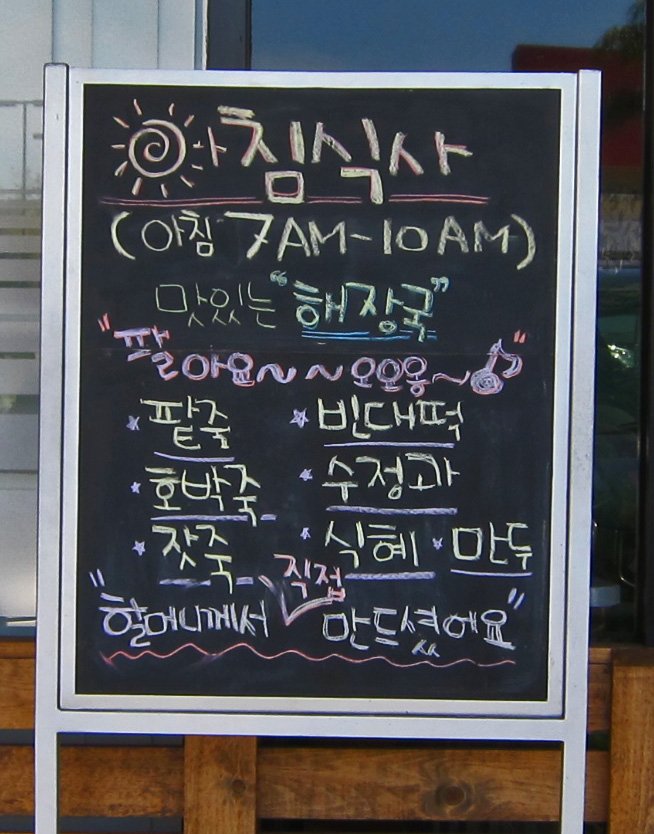 아침식사
(아침 7AM-10AM)
맛있는 "해장국"
"팔아요~~오오옹~♪"
* 팥죽 * 빈대떡
* 호박죽 * 수정과
* 잣죽 * 식혜 * 만두
"할머니께서 직접 만드셨어요"